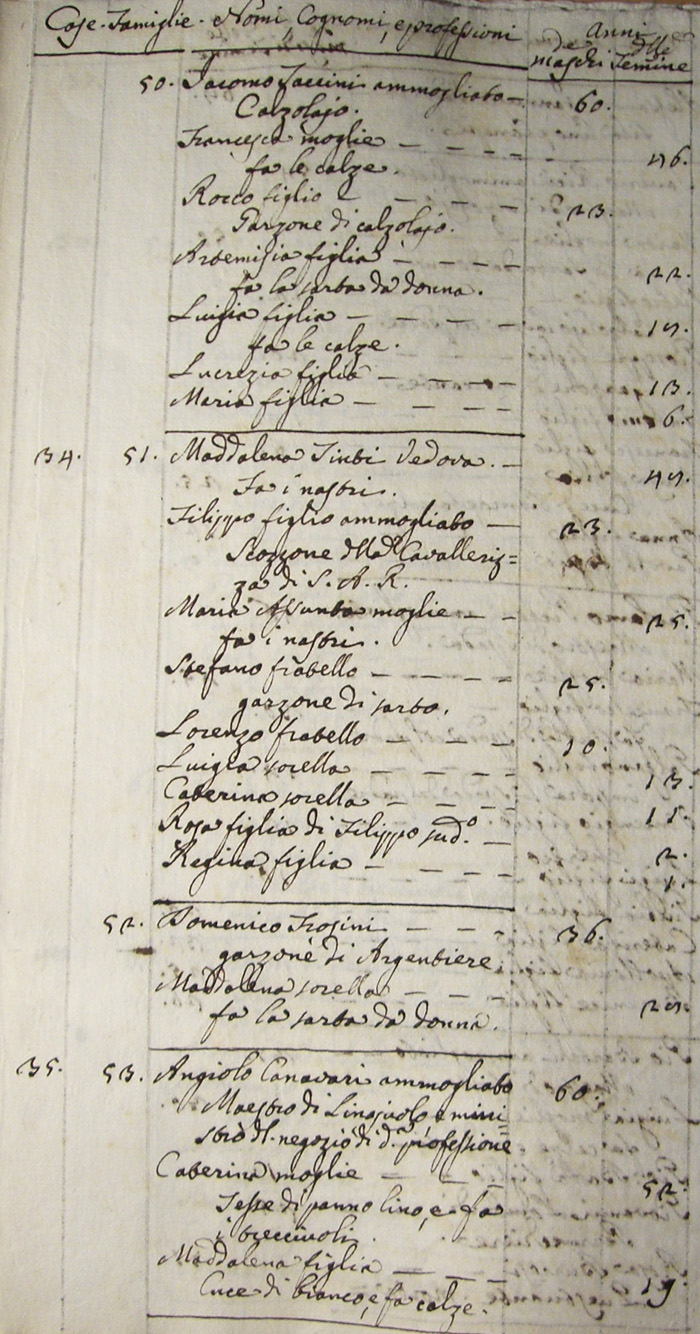 Case. Famiglie. Nomi, Cognomi, e professioni Anni
de maschi delle Femine
50. Jacomo Faccini ammogliato 60.
Calzolajo.
Francesca moglie 46.
fa le calze.
Rocco figlio 23.
Garzone di calzolajo.
Artemisia figlia 22.
fa la sarta da donna.
Luigia figlia 19.
fa le calze.
Lucrezia figlia 13.
Maria figlia 6.
34. 51. Maddalena Vedova. 49.
Fa i nastri.
Filippo figlio ammogliato 23.
Scozzone della Caval­leriz=
za di S. A. R.
Maria Assunta moglie 25.
fa i nastri.
Stefano fratello 25.
garzone di sarto.
Lorenzo fratello 10.
Luigia sorella 13.
Caterina sorella 15.
Rosa figlia di Filippo sud.o 2.
Regina figlia 1.
52. Domenico Frosini 36.
garzone di Argentiere
Maddalena sorella 29.
fa la sarta da donna.
35. 53. Angiolo Canavari ammogliato 60.
Maestro di Linajuolo e mini=
stro del negozio di d.a professione
Caterina moglie 52.
Tesse di panno lino, e fa
i
Maddalena figlia 19.
Cuce di bianco, e fa calze.